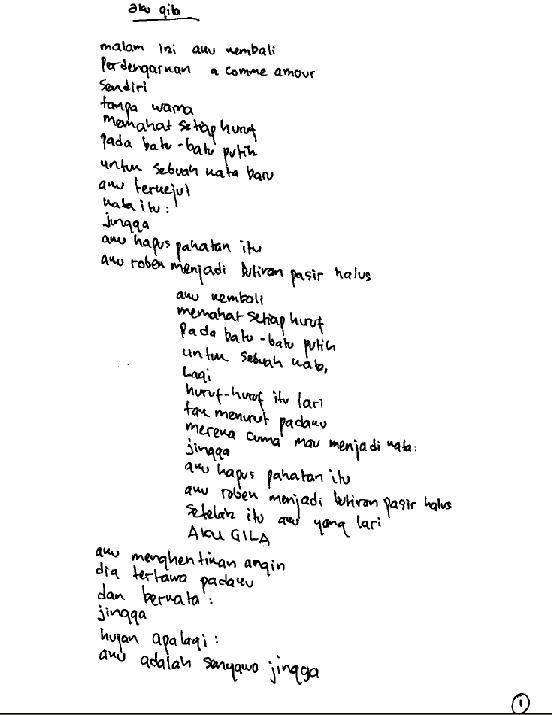 aku gila
malam ini aku kembali
Perdengarkan a comme amour
Sendiri
tanpa warna
memahat setiap huruf
Pada batu-batu putih
untuk sebuah kata baru
aku terkejut
kata itu:
jingga
aku hapus pahatan itu
aku robek menjadi butiran pasir halus
aku kembali
memahat setiap huruf
Pada batu-batu putih
untuk sebuah kata,
Lagi
huruf-huruf itu lari
tak menurut padaku
mereka cuma mau menjadi kata:
jingga
aku hapus pahatan itu
aku robek menjadi butiran pasir halus
Setelah itu aku yang lari
AKU GILA
aku menghentikan angin
dia tertawa padaku
dan berkata:
jingga
hujan apalagi:
aku adalah jingga
1